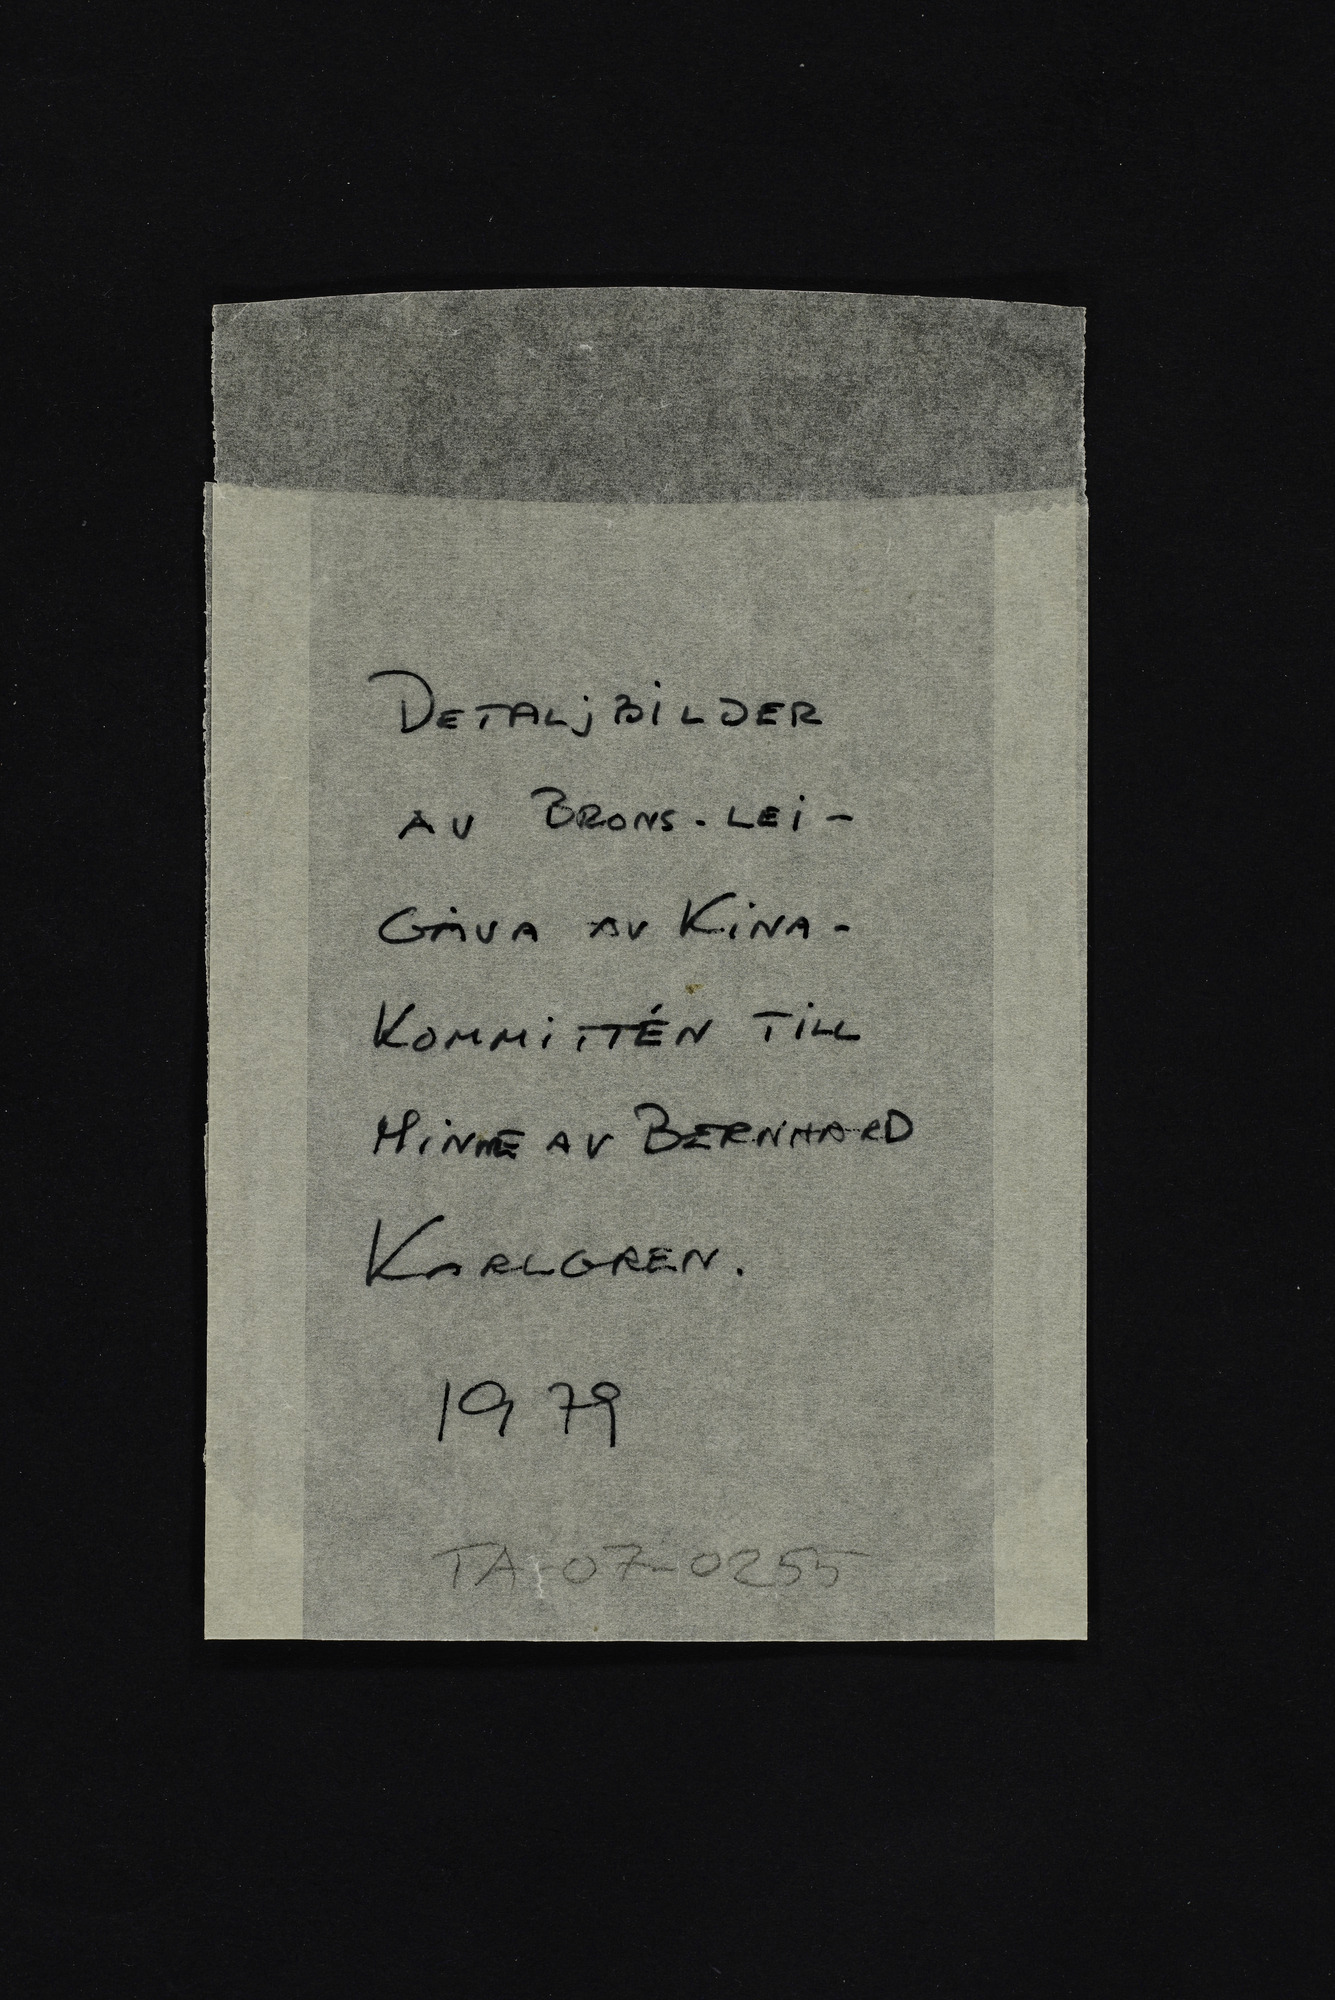 DETALjBiLDER
AV BRONS-LEi-
GÅVA AV KiNA-
KOMMiTTÉN TiLL
MiNNE AV BERNHARD
KARLGREN.
1979
TA-07-0255